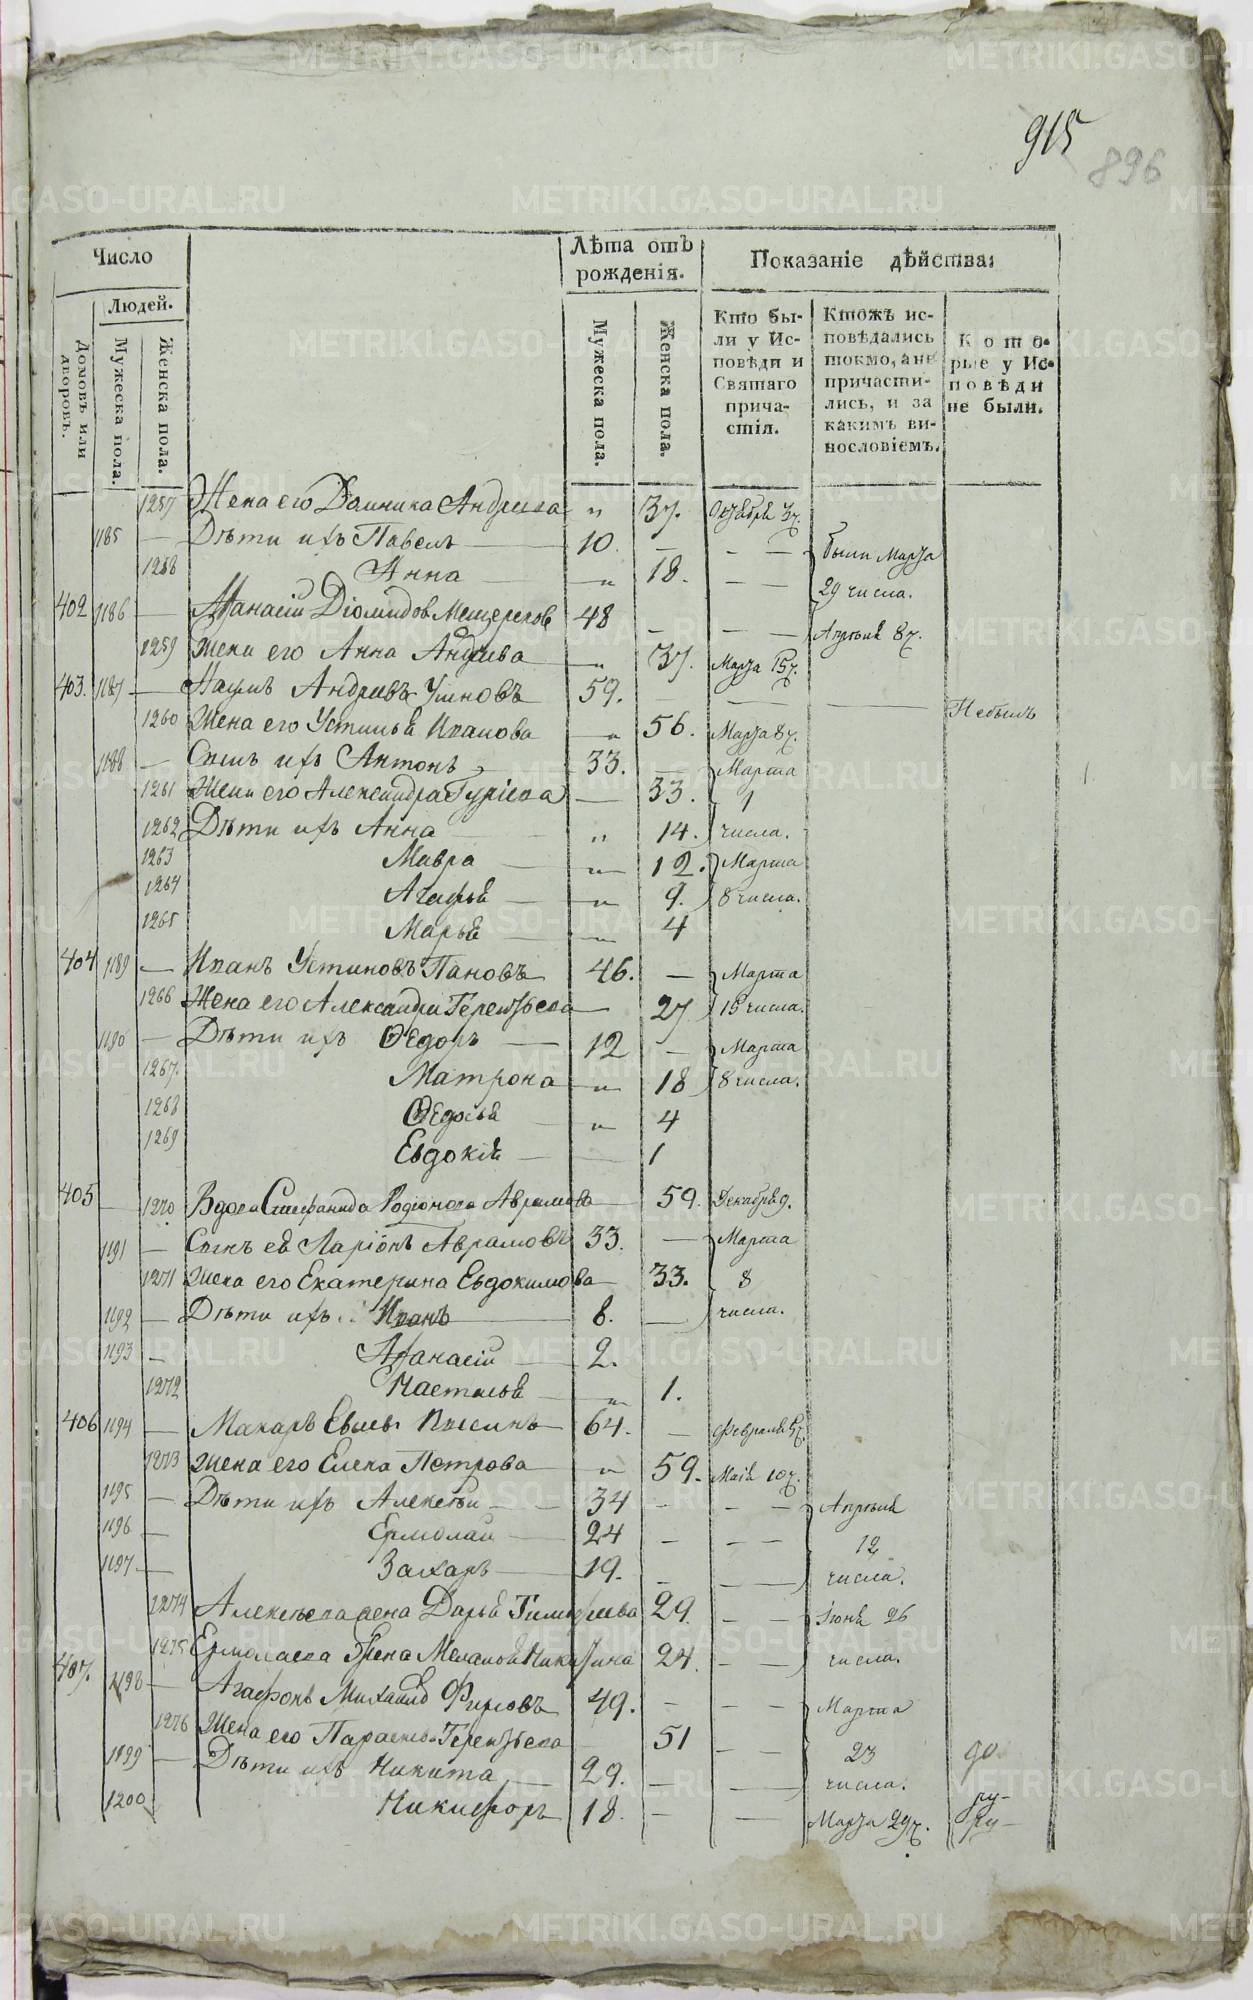 915
896
Число
Лѣта отъ рожденія.
Показаніе дѣйства:
Людей.
Домовъ или дворовъ.
Мужеска пола.
Женска пола.
Мужеска пола.
Женска пола.
Кто были у Исповѣди и Святаго причастія.
Ктожъ исповѣдались токмо, а не причастились, и за какимъ винословіемъ.
Которые у Исповѣди не были.
1257 Жена его Домника Андреева „ 37. Октября 3 ч.
1185 — Дѣти ихъ Павелъ — 10. — — — были Марта
1258 Анна — „ 18. — — 29 числа.
402 1186 — Афанасій Діомидов Мещереков 48 — — — Апрѣля 8 ч.
1259 Жена его Анна Андреева — „ 37. Марта 15 ч.
403. 1187 — Наумъ Андреевъ 59. — — — Небылъ
1260 Жена его Устинья Иванова — „ 56. Марта 8 ч.
1188 — Сынъ ихъ Антонъ 33. — Марта
1261 Жена его Александра Гуріева — 33. 1
1262 Дѣти ихъ Анна — „ 14. числа.
1263 Мавра — „ 12. Марта
1264 Агафья — „ 9. 8 числа.
1265 Марья — 4
404 1189 — Иванъ Устиновъ Пановъ 46. — Марта
1266 Жена его Александра Терентьева — 27 15 числа.
1190 — Дѣти ихъ Ѳедоръ — 12 — Марта
1267. Матрона — „ 18 8 числа.
1268 Ѳедосья — „ 4
1269 Евдокія — 1
405 — 1270 Вдова Степанида Родіонова Аврамова — 59. Декабря 9.
1191 — Сынъ ея Ларіонъ Аврамовъ 33. — Марта
1271 Жена его Екатерина Евдокимова — 33. 8
1192 — Дѣти ихъ Иванъ — 8. — числа.
1193 — Афанасій — 2.
1272 Настасья — „ 1.
406 1194 — Макаръ 64. — Февраля
1273 Жена его Елена Петрова — „ 59. Маія 10 ч.
1195 — Дѣти ихъ Алексѣй — 34 — — — Апрѣля
1196 — Ермолай — 24 — — — 12
1197 — Захаръ — 19. — — числа.
1274 Алексѣева жена Дарья 29. — — Іюня 26
1275 Ермолаева жена Меланья Никитина 24. — — числа.
407. 1198 — Агафонъ Михайлов Фирсовъ 49. — — Марта
1276 Жена его Парасковья Терентьева 51 — — 23 до
1199 — Дѣти ихъ Никита — 29. — — числа. ру-
1200 Никифоръ 18. — — Марта 29 ч. ру-